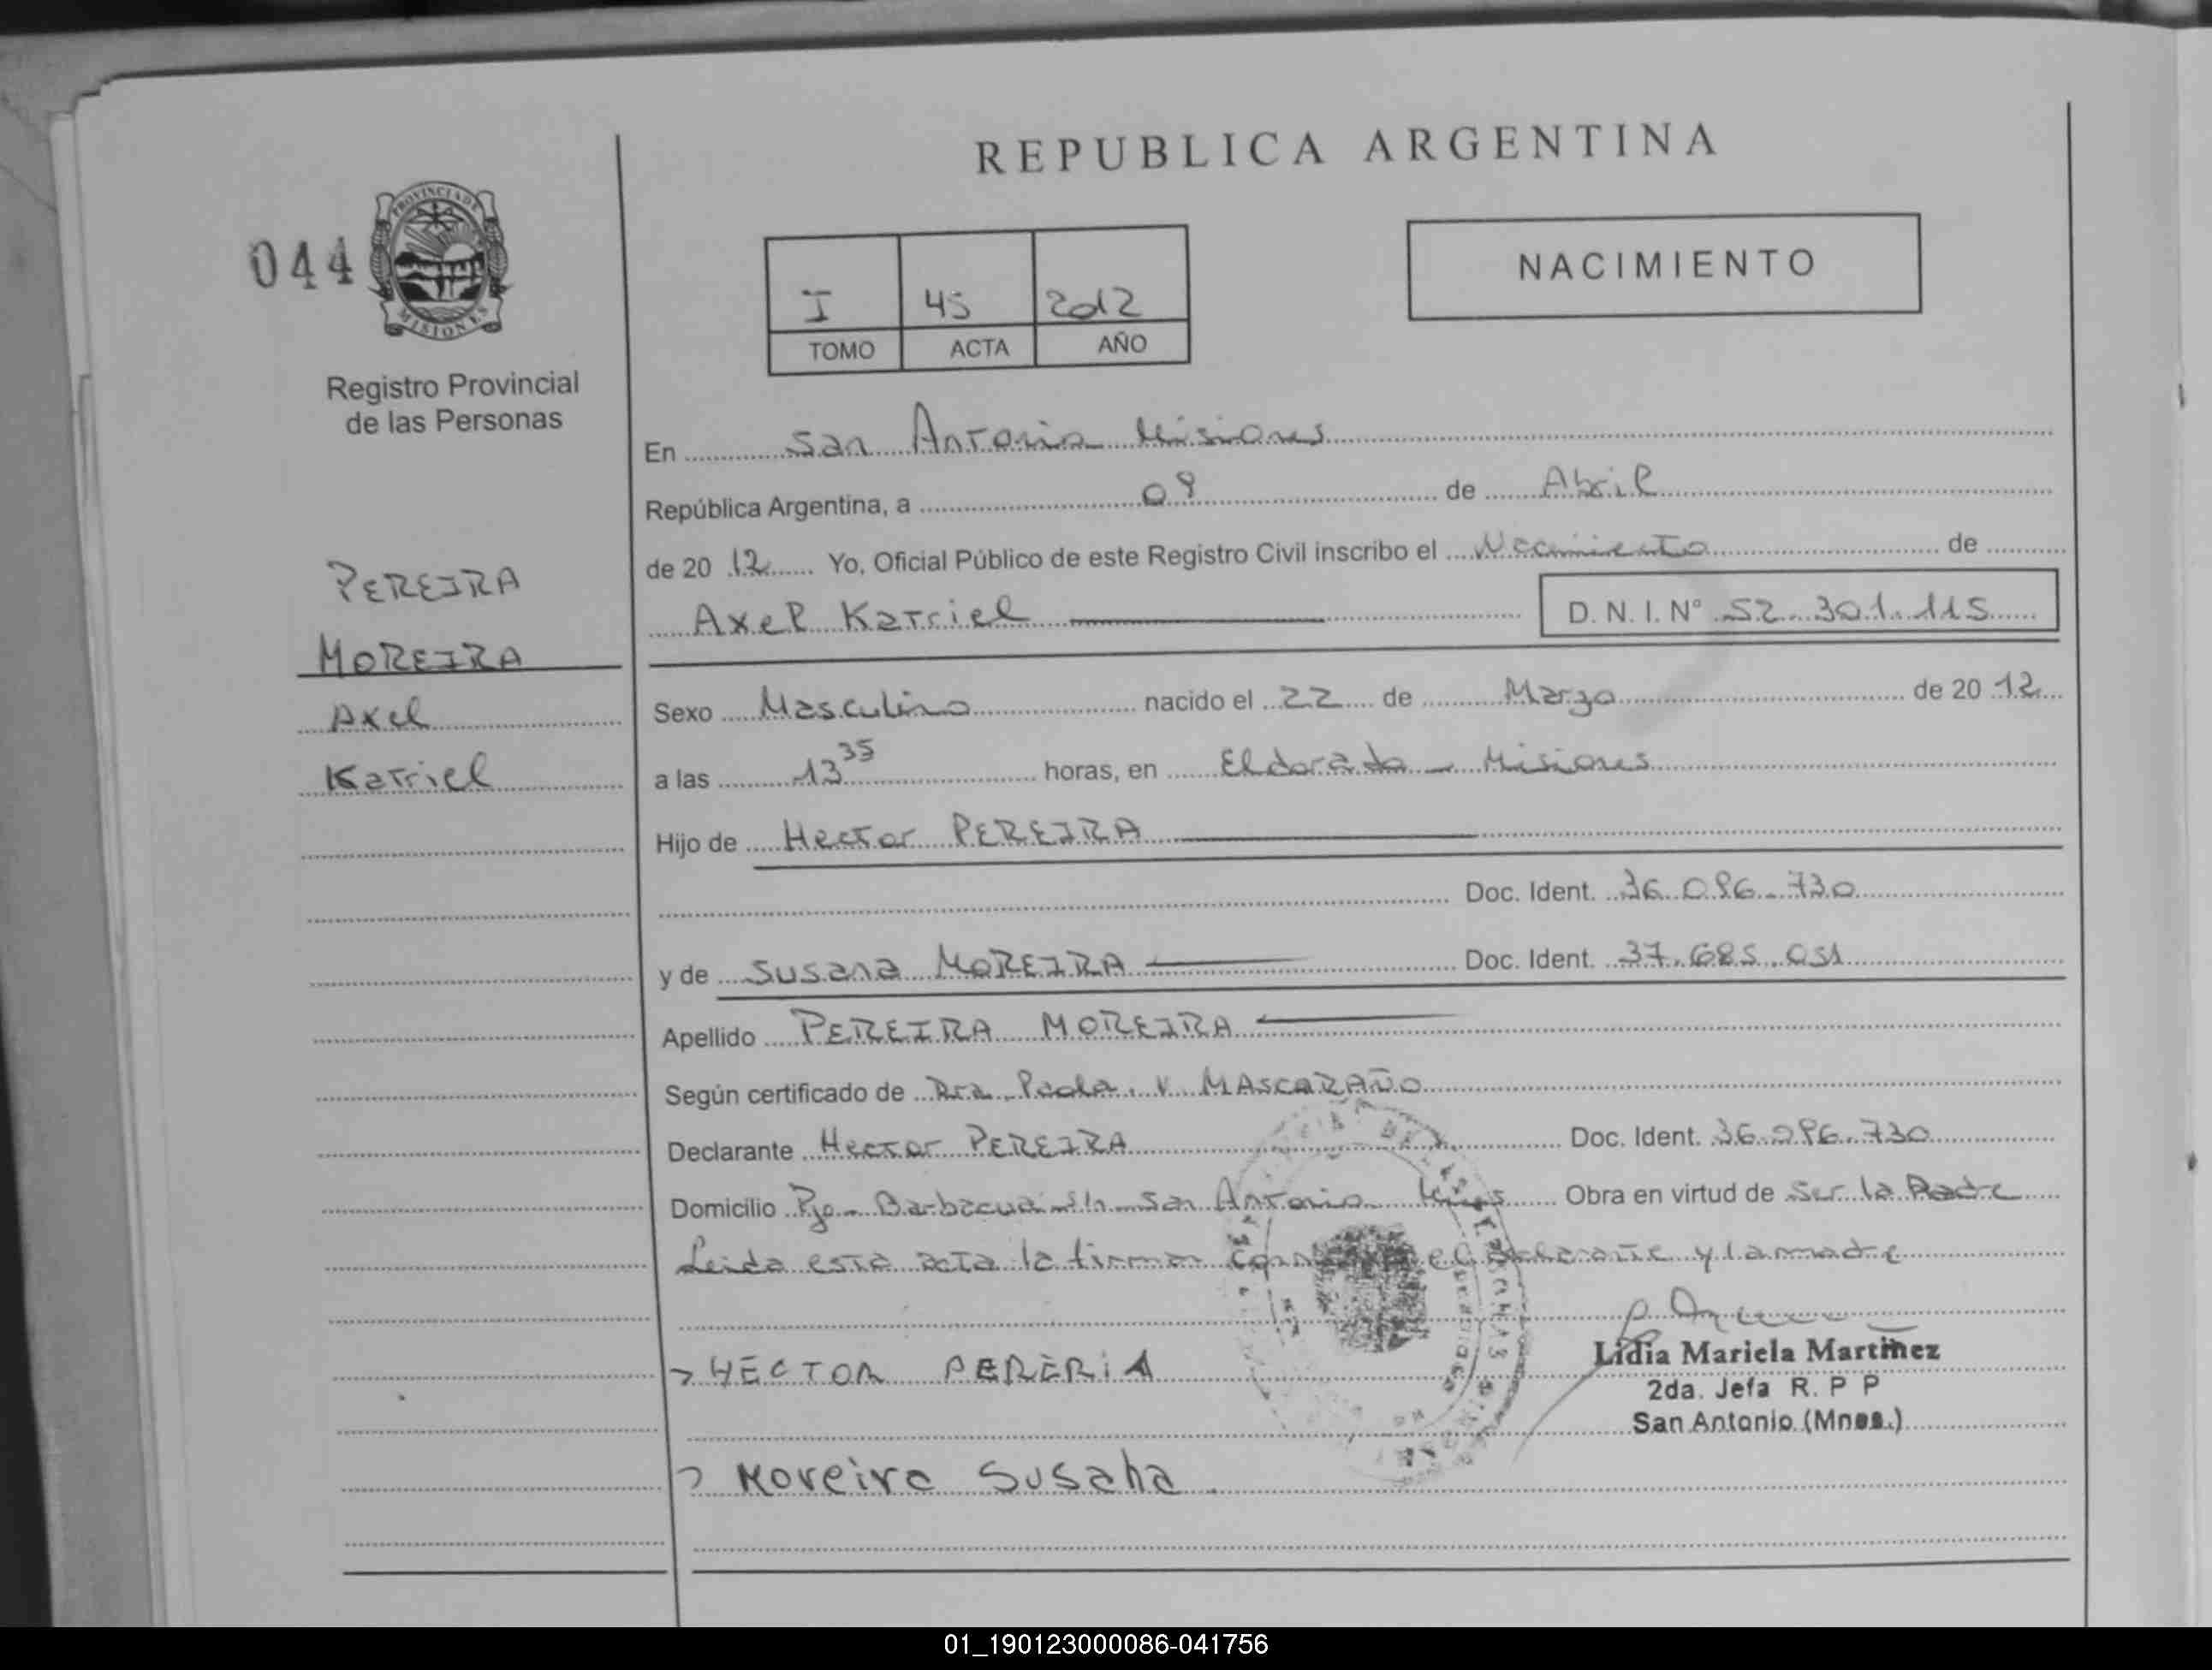 REPUBLICA ARGENTINA
044
PROVINCIA DE
MISIONES
Registro Provincial
de las Personas
I 45 2012
TOMO ACTA AÑO
NACIMIENTO
En San Antonio Misiones
República Argentina, a 09 de Abril
de 20 12 Yo, Oficial Público de este Registro Civil inscribo el Nacimiento de
Axel Katriel D. N. I. N° 52.301.115
PEREIRA
MOREIRA
Axel
Katriel
Sexo Masculino nacido el 22 de Marzo de 20 12
a las 13 35 horas, en Eldorado - Misiones
Hijo de Hector PEREIRA
Doc. Ident. 36.096.730
y de Susana MOREIRA Doc. Ident. 37.685.051
Apellido PEREIRA MOREIRA
Según certificado de Dra. Paola. V. MASCARAÑO
Declarante Hector PEREIRA Doc. Ident. 36.096.730
Domicilio Pje. Barbacua s/n San Antonio Mnes Obra en virtud de Ser la Padre
Leida esta acta la firman conmigo el declarante y la madre
Lidia Mariela Martinez
2da. Jefa R. P P
San Antonio (Mnes.)
HECTOR PERERIA
Moreira Susana
01_190123000086-041756